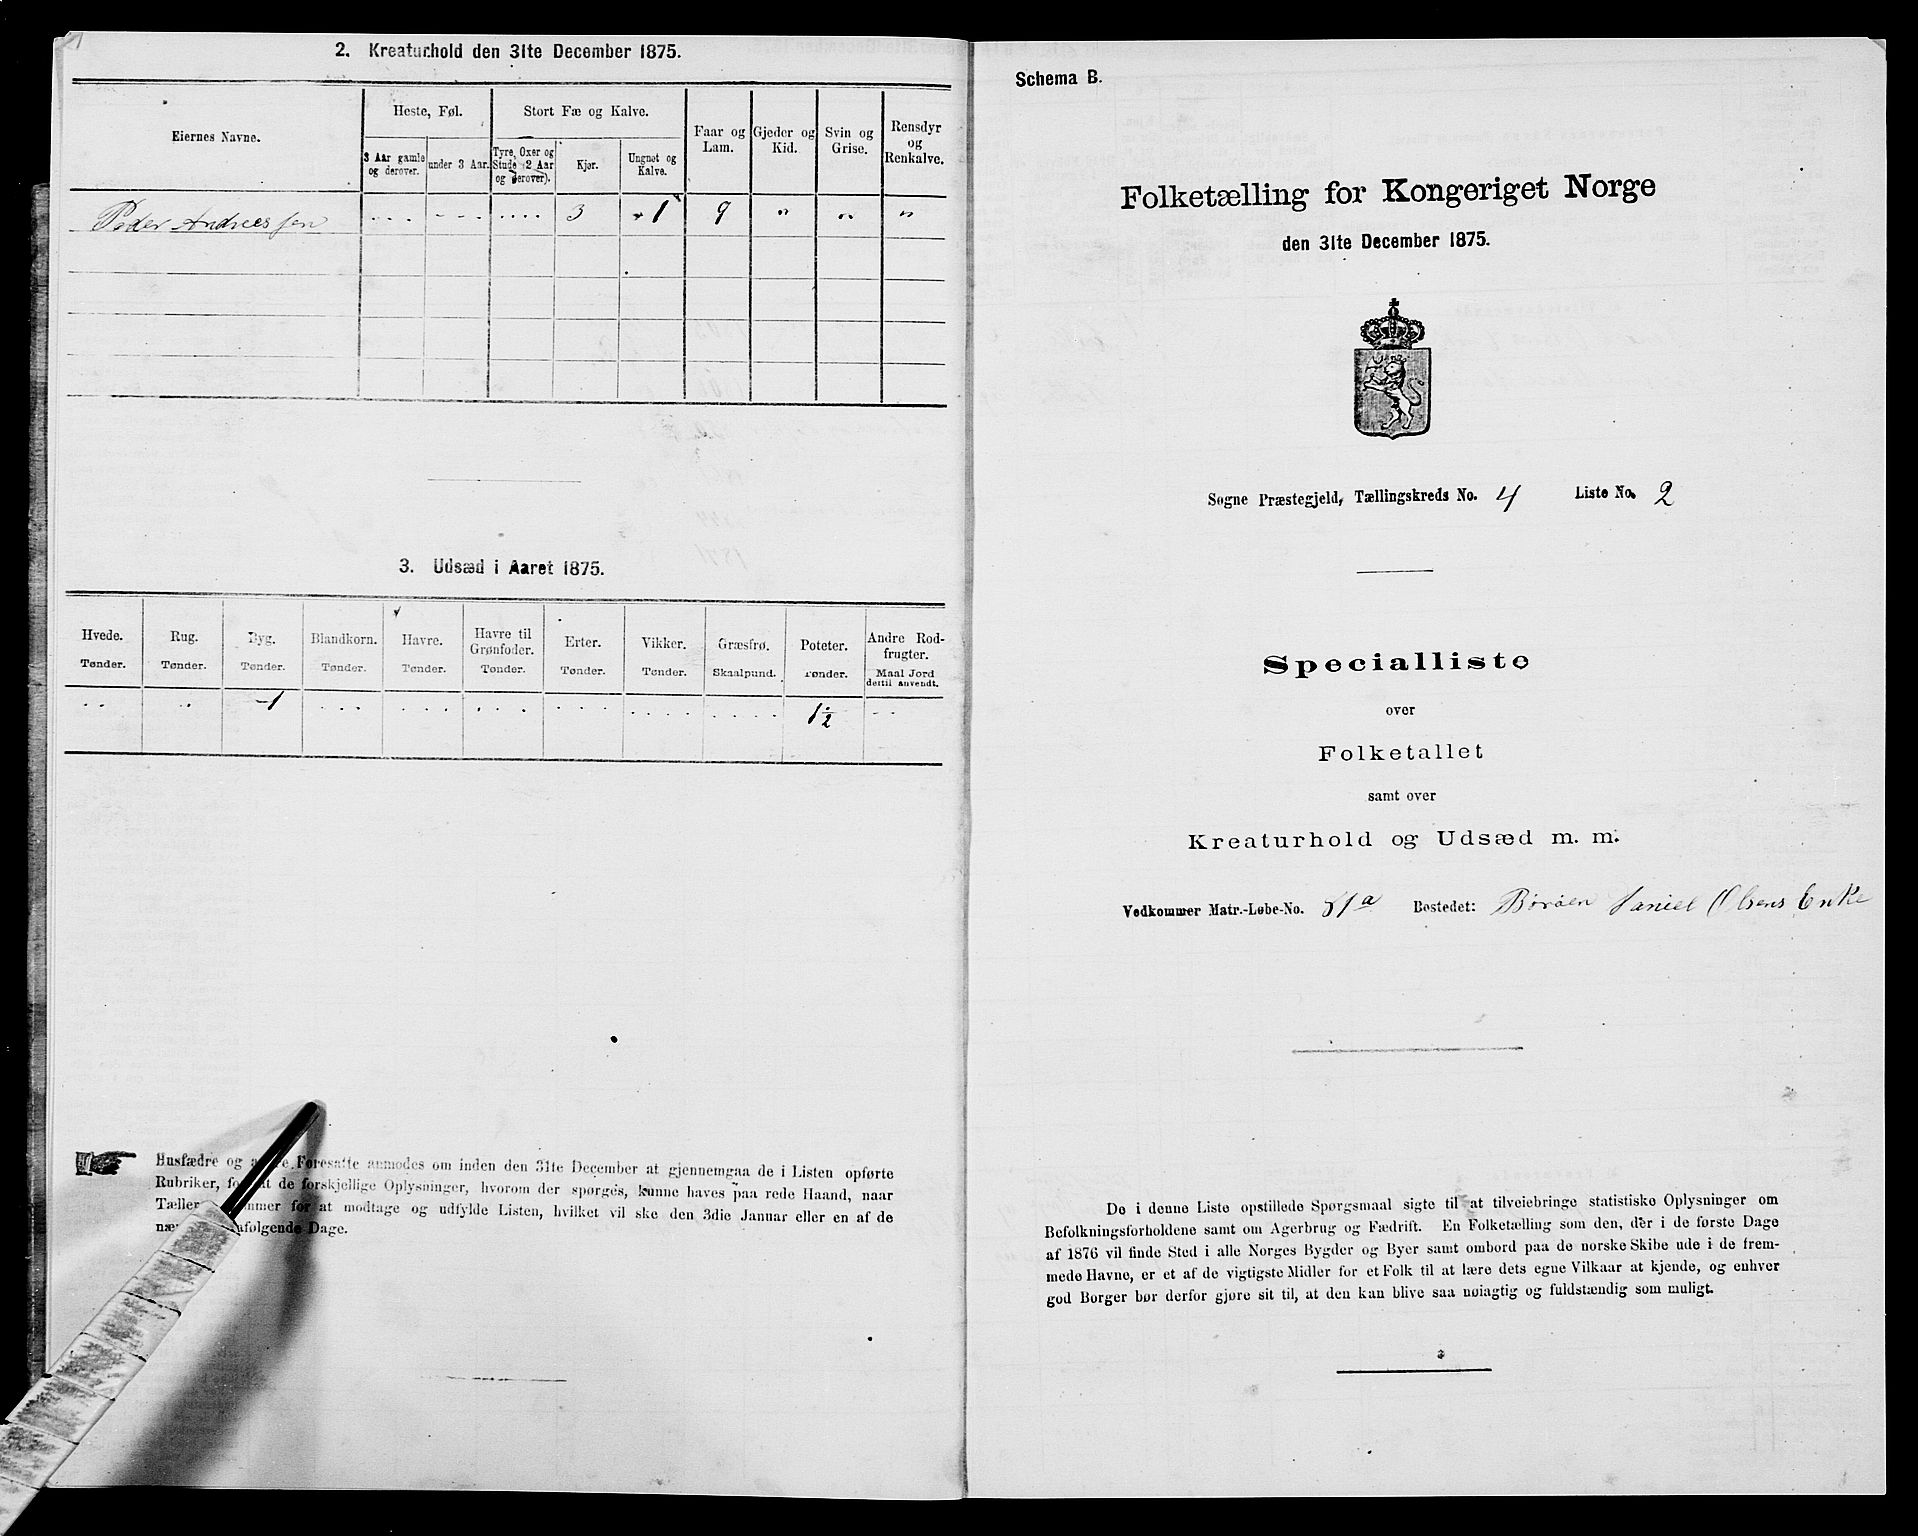 2. Kreaturhold den 31te December 1875.
Eiernes Navne.
Heste, Føl.
Stort Fæ og Kalve.
Faar og
Lam.
Gjeder og
Kid.
Svin og
Grise.
Rensdyr
og
Renkalve.
3 Aar gamle
og derover.
under 3 Aar.
Tyre, Oxer og
Stude (2 Aar
og derover).
Kjør.
Ungnøt og
Kalve.
Peder Andreessen
3
1
9
3. Udsæd i Aaret 1875.
Hvede.
Tønder.
Rug.
Tønder.
Byg.
Tønder.
Blandkorn.
Tønder.
Havre.
Tønder.
Havre til
Grønfoder.
Tønder.
Erter.
Tønder.
Vikker.
Tønder.
Græsfrø.
Skaalpund.
Poteter.
Tønder.
Andre Rod-
frugter.
Maal Jord
dertil anvendt.
1
1 1/2
Husfædre og Foresatte anmodes om inden den 31te December at gjennemgaa de i Listen opførte
Rubriker, for at de forskjellige Oplysninger, hvorom der spørges, kunne haves paa rede Haand, naar
Tælleren kommer for at modtage og udfylde Listen, hvilket vil ske den 3die Januar eller en af de
Dage.
Schema B.
Folketælling for Kongeriget Norge
den 31te December 1875.
Søgne Præstegjeld, Tællingskreds No. 4 Liste No. 2
Specialliste
over
Folketallet
samt over
Kreaturhold og Udsæd m. m.
Vedkommer Matr.-Løbe-No. 51a Bostedet: Børøen Daniel Olsens Enke
De i denne Liste opstillede Spørgsmaal sigte til at tilveiebringe statistiske Oplysninger om
Befolkningsforholdene samt om Agerbrug og Fædrift. En Folketælling som den, der i de første Dage
af 1876 vil finde Sted i alle Norges Bygder og Byer samt ombord paa de norske Skibe ude i de frem-
mede Havne, er et af de vigtigste Midler for et Folk til at lære dets egne Vilkaar at kjende, og enhver
god Borger bør derfor gjøre sit til, at den kan blive saa nøiagtig og fuldstændig som muligt.